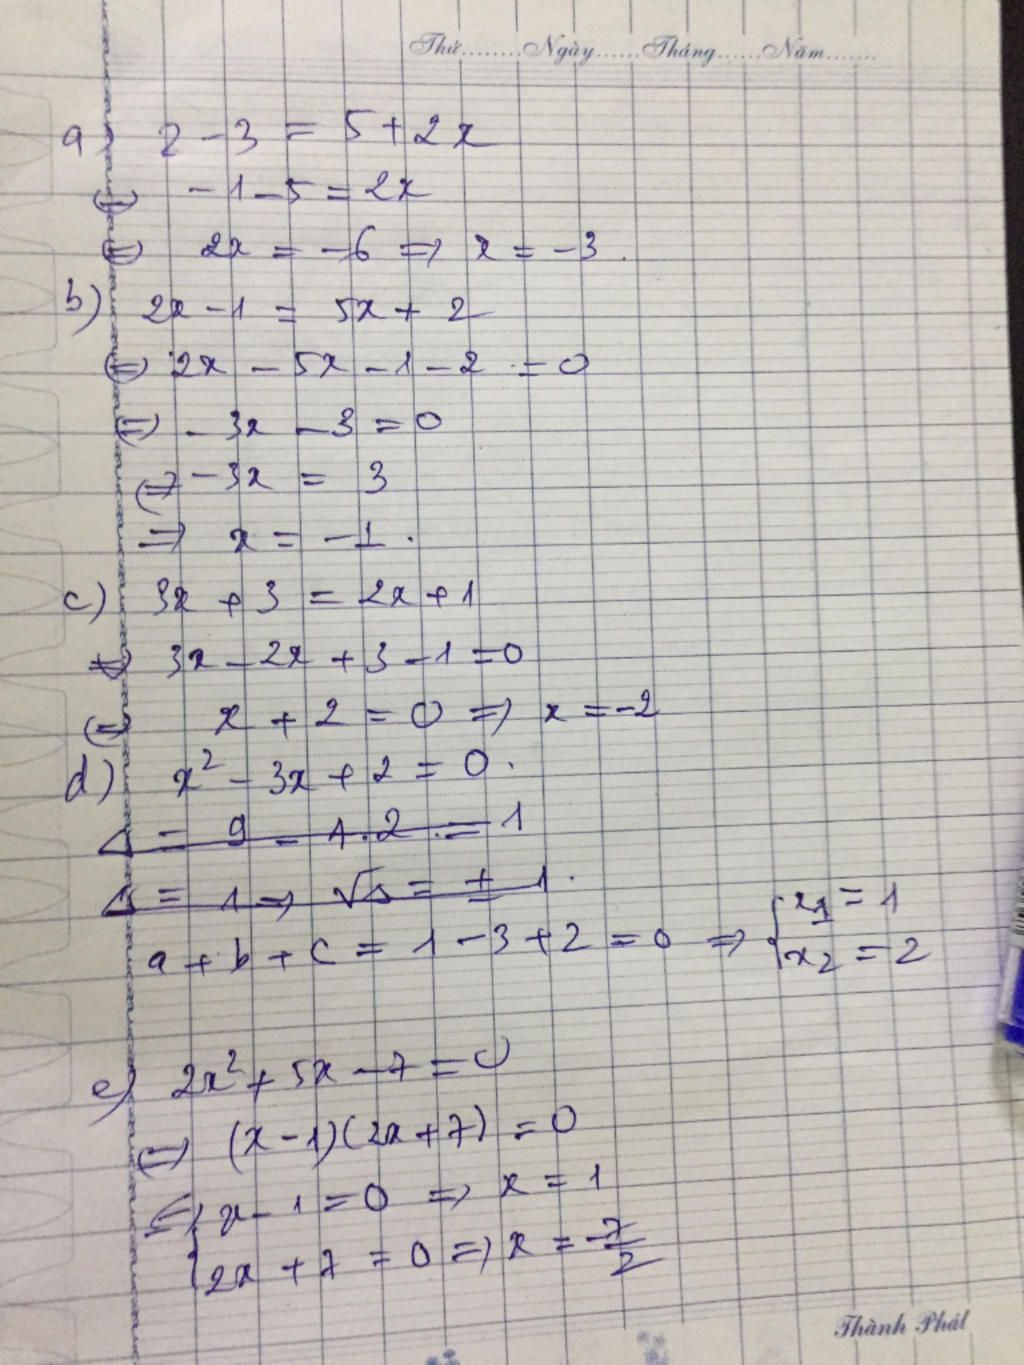 Thứ........Ngày......Tháng......Năm.......
a) 2 - 3 = 5 + 2x
⇔ - 1 - 5 = 2x
⇔ 2x = -6 ⇒ x = -3.
b) 2x - 1 = 5x + 2
⇔ 2x - 5x - 1 - 2 = 0
⇔ - 3x - 3 = 0
⇔ - 3x = 3
⇒ x = -1.
c) 3x + 3 = 2x + 1
⇔ 3x - 2x + 3 - 1 = 0
⇔ x + 2 = 0 ⇒ x = -2
d) x² - 3x + 2 = 0.
Δ = 9 - 4.2 = 1
Δ = 1 ⇒ √Δ = ± 1.
a + b + c = 1 - 3 + 2 = 0 ⇒ { x₁ = 1
x₂ = 2
e) 2x² + 5x - 7 = 0
⇔ (x - 1)(2x + 7) = 0
⇔ { x - 1 = 0 ⇒ x = 1
2x + 7 = 0 ⇒ x = -7/2
Thành Phát